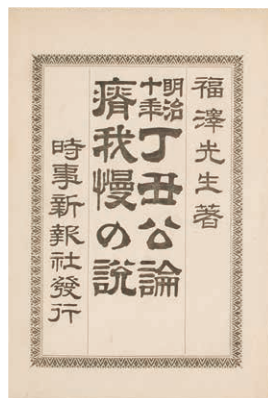 福澤先生著
明治十年丁丑公論
瘠我慢の說
時事新報社發行